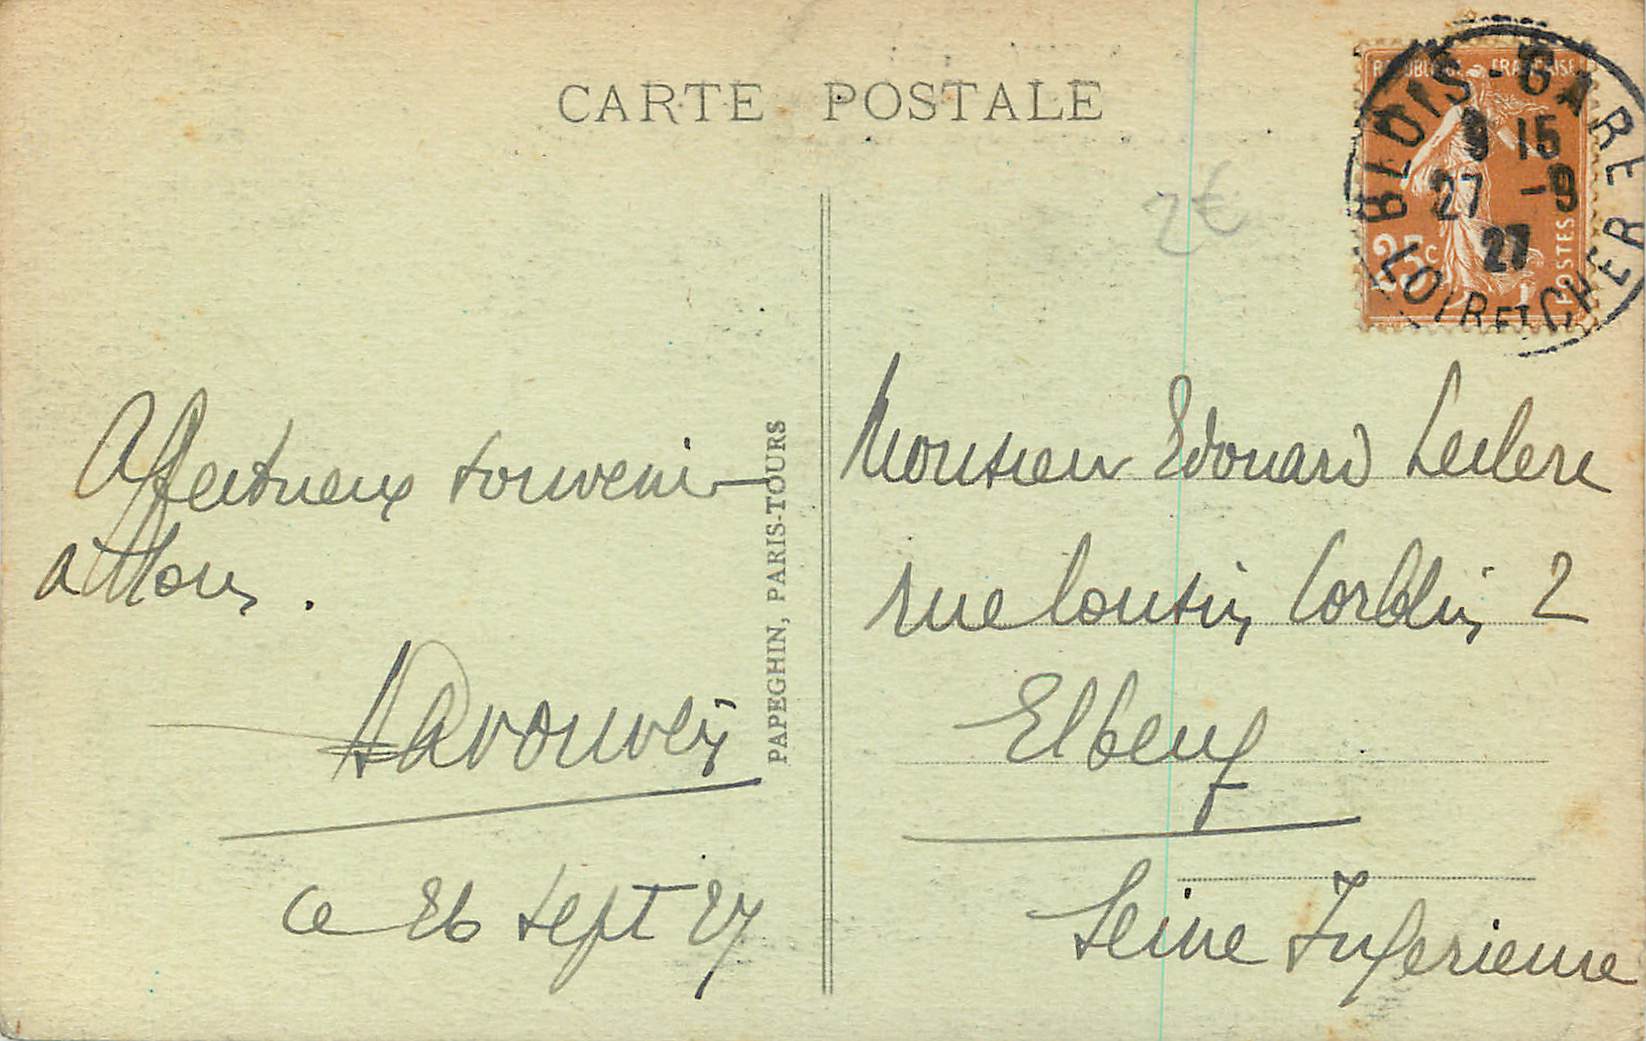 CARTE POSTALE
REPUBLIQUE FRANÇAISE
25c
POSTES
BLOIS-GARE
9 15
27 -9
27
LOIR ET CHER
2€
Affectueux souvenir
a tous.
ce 26 sept 27
PAPEGHIN, PARIS-TOURS
Monsieur Edouard Leclerc
rue Cousin Corblin 2
Elbeuf
Seine Inferieure